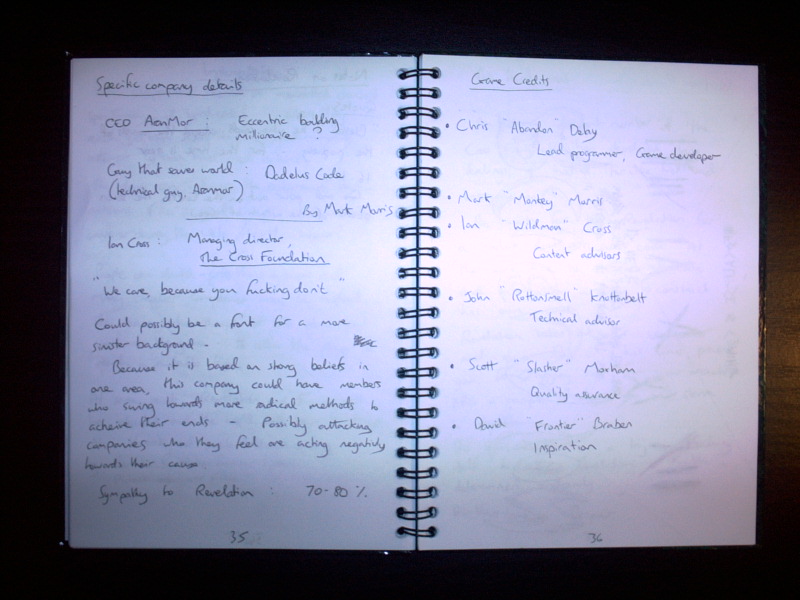 Specific company details
CEO AronMor : Eccentric bumbling
millionaire ?
Guy that saves world : Dadelus Code
(technical guy, Aronmor)
By Mark Morris
Ian Cross : Managing director,
The Cross Foundation
"We care, because you fucking don't"
Could possibly be a front for a more
sinister background -
Because it is based on strong beliefs in
one area, this company could have members
who swing towards more radical methods to
acheive their ends - Possibly attacking
companies who they feel are acting negatively
towards their cause.
Sympathy to Revelation : 70-80 %.
35
Game Credits
• Chris "Abandon" Deby
Lead programmer, Game developer
• Mark "Monkey" Morris
• Ian "Wildman" Cross
Content advisors
• John "Rottonsmell" Knottenbelt
Technical advisor
• Scott "Slasher" Marham
Quality assurance
• David "Frontier" Braben
Inspiration
36